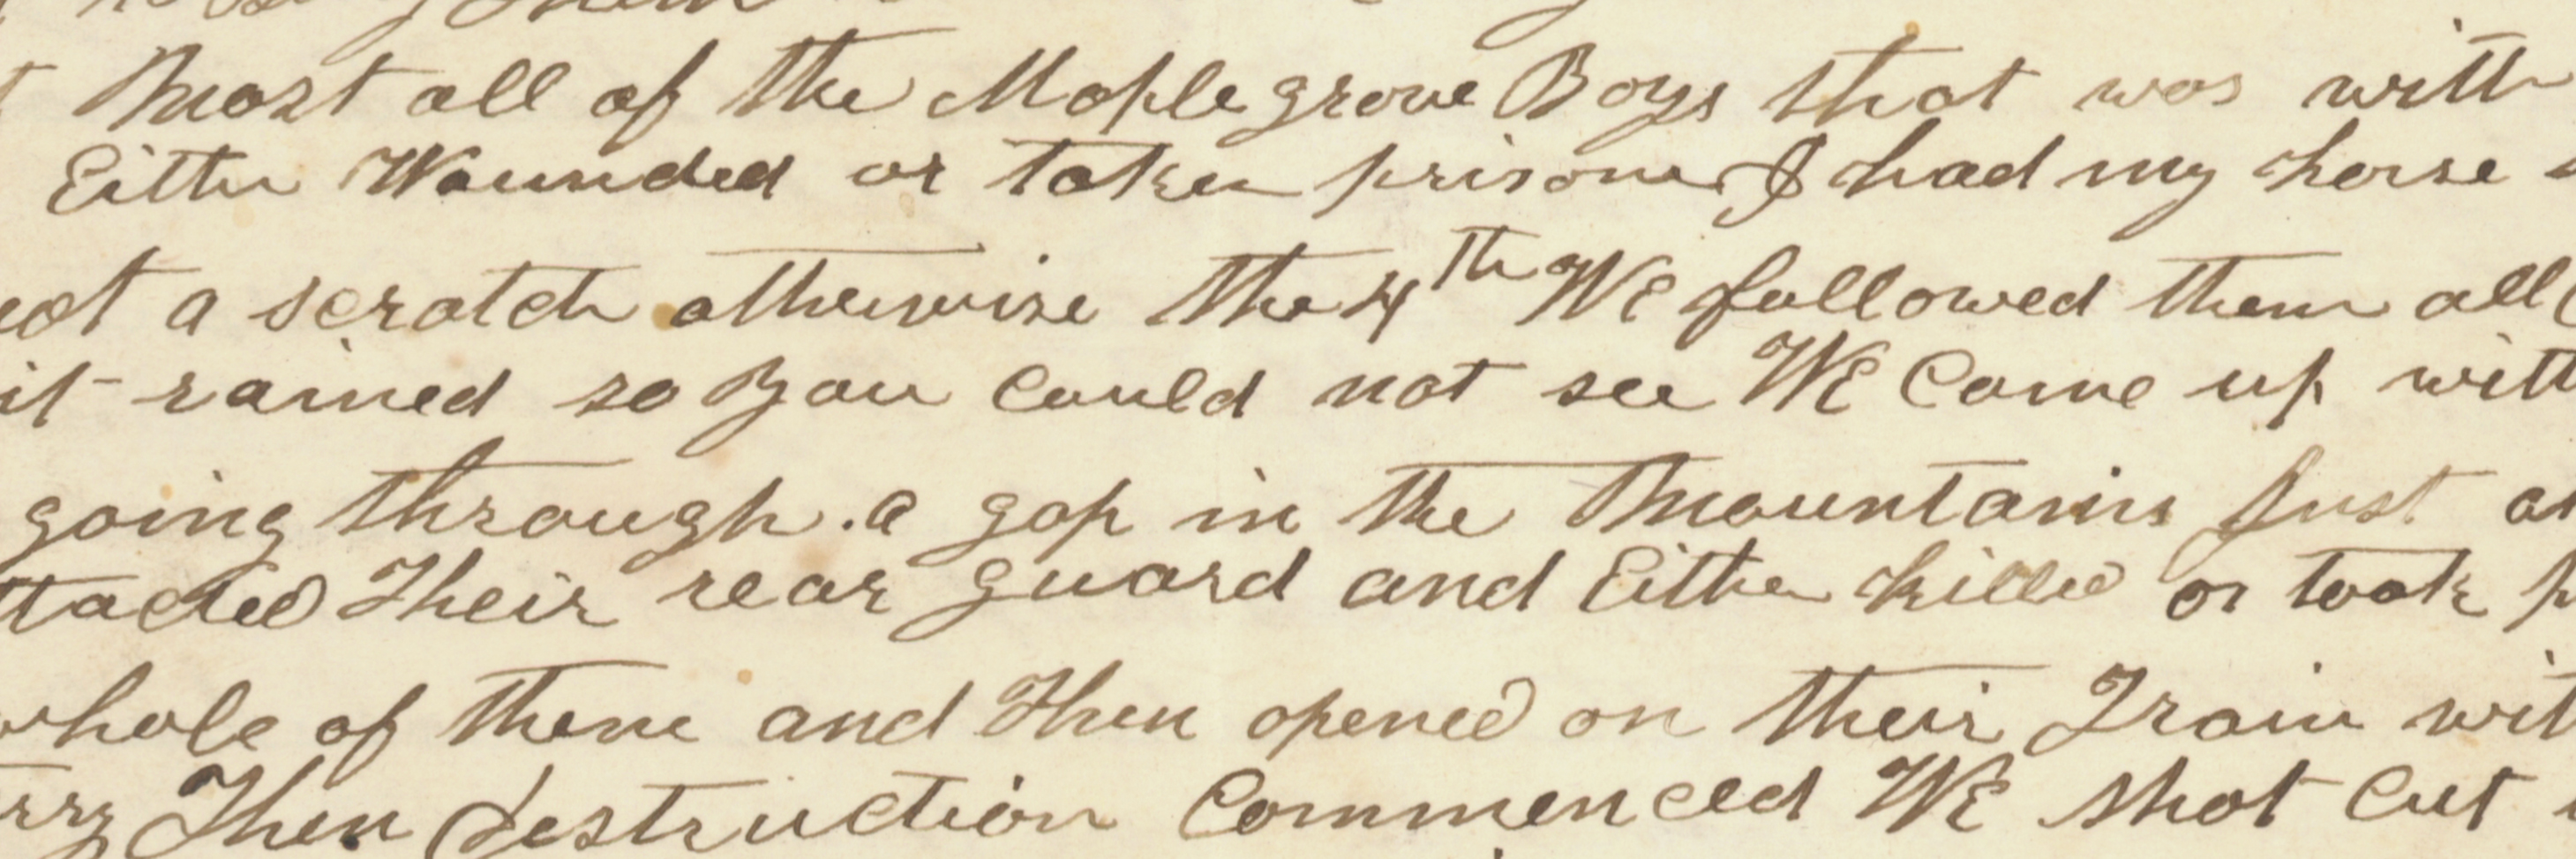 Most all of the Maple grove Boys that was with
Either Wounded or taken prisoner I had my horse
not a scratch otherwise the 4th WE followed them all
it rained so you Could not see WE Come up with
going through . a gap in the Mountains Just as
ttacted Their rear guard and Either killed or took
whole of them and Then opened on their Train wit
Then destruction Commenced WE shot Cut